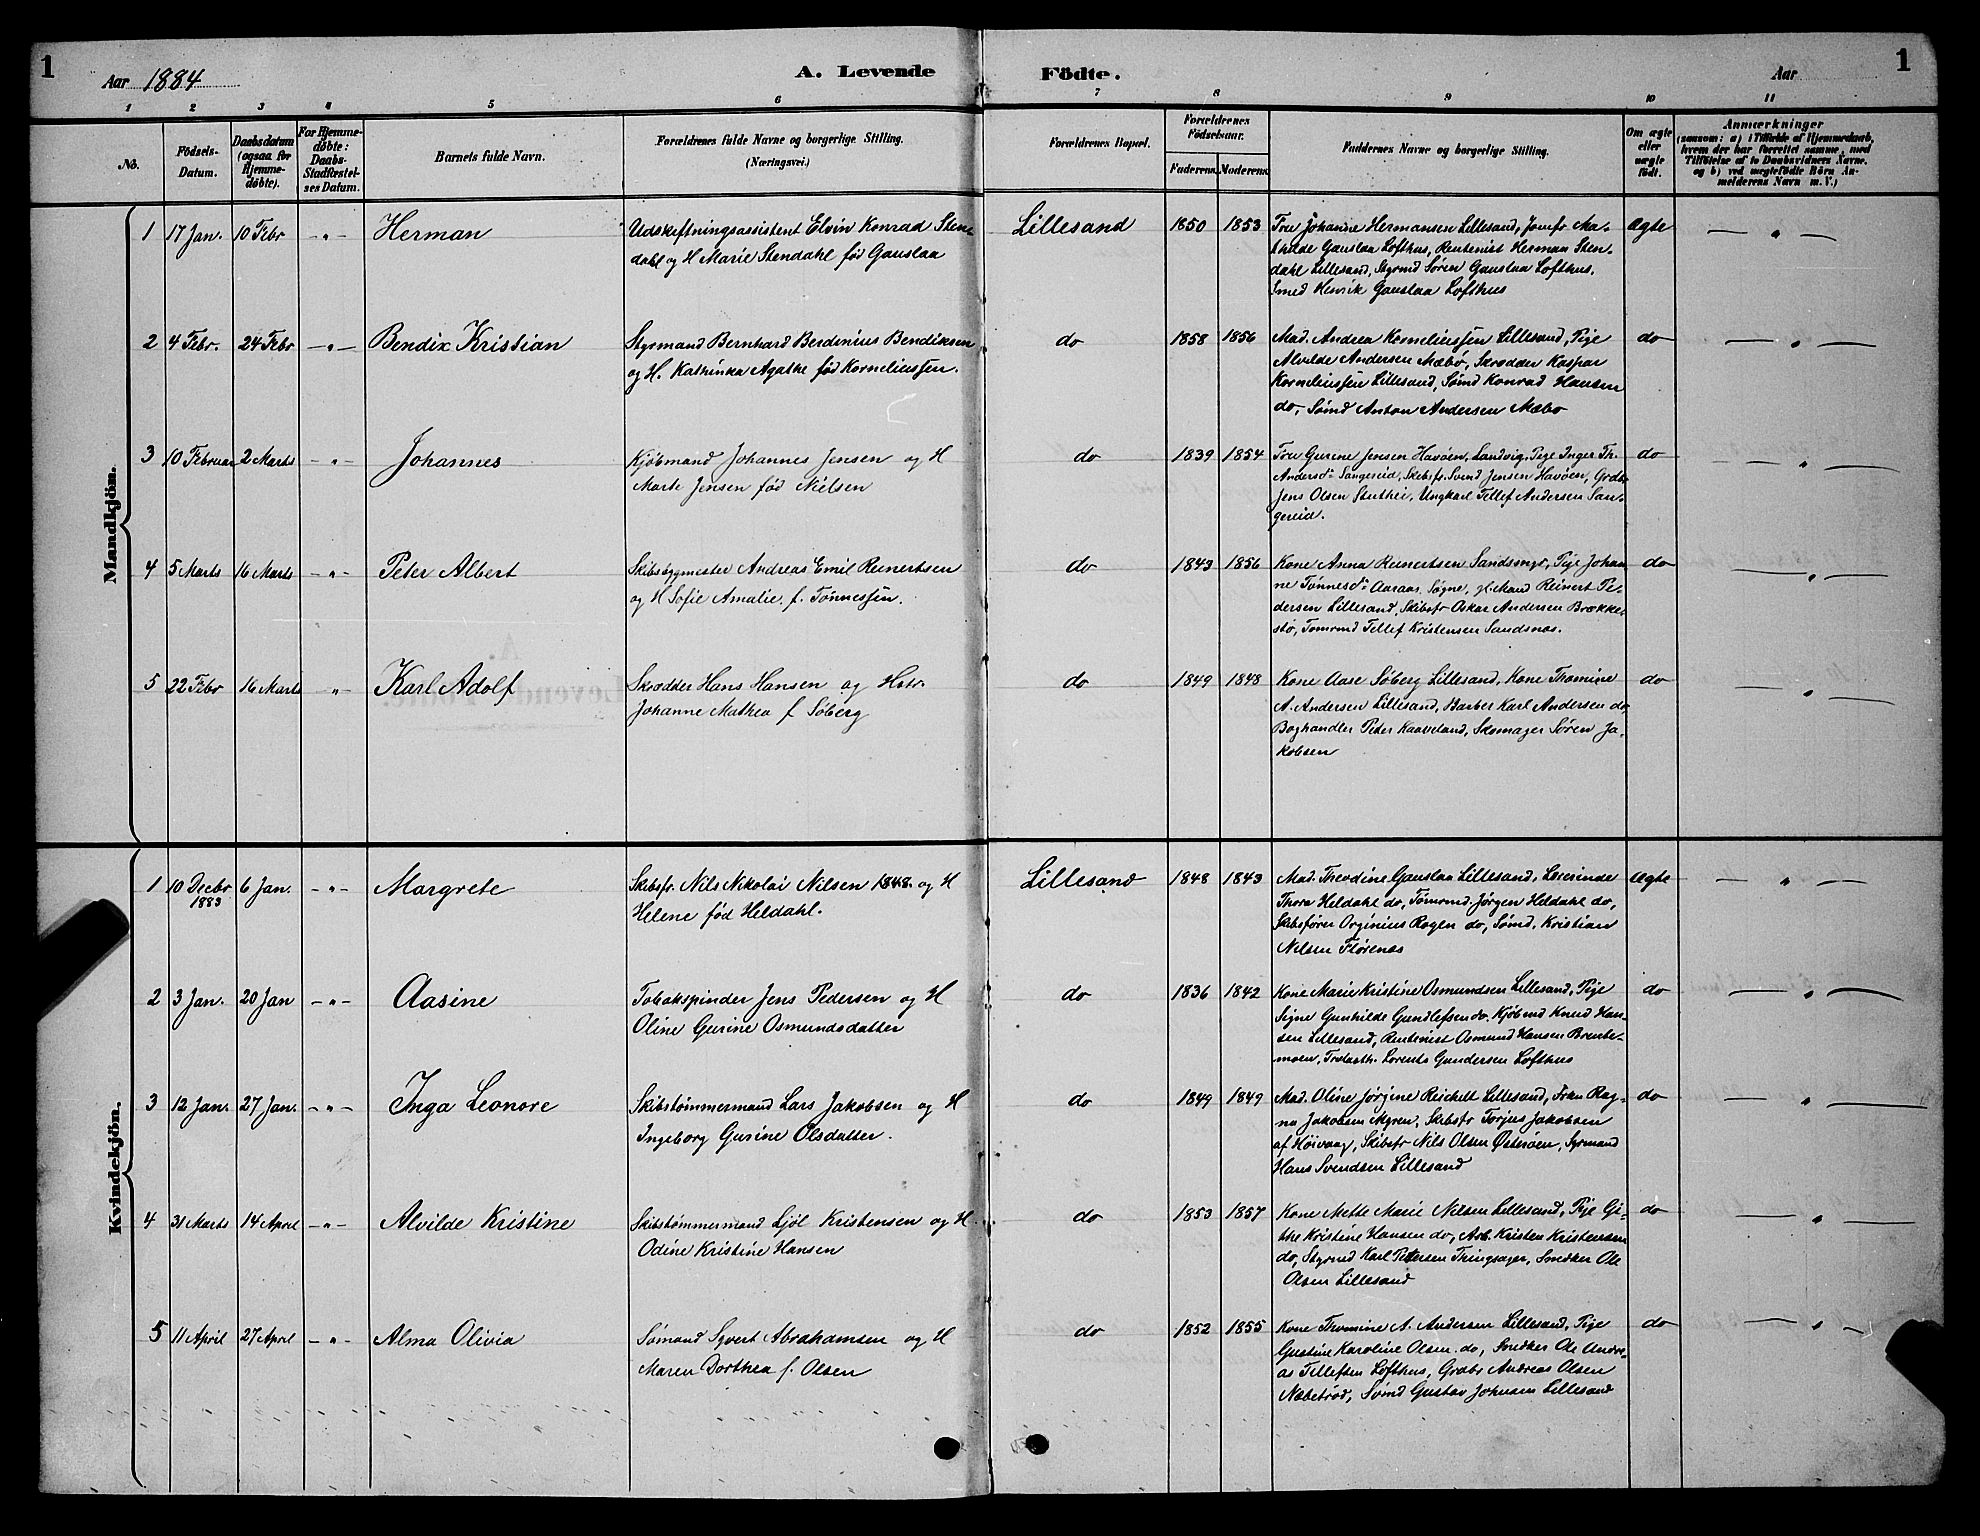 1
Aar 1884
A. Levende Födte.
Aar
1
1 2 3 4 5 6 7 8 9 10 11
No.
Födsels-
Datum.
Daabsdatum
(ogsaa for
Hjemme-
döbte).
For Hjemme-
döbte:
Daabs-
Stadfæstel-
ses Datum.
Barnets fulde Navn.
Forældrenes fulde Navne og borgerlige Stilling.
(Næringsvei.)
Forældrenes Bopæl.
Forældrenes
Födselsaar.
Faderens. Moderens.
Faddernes Navne og borgerlige Stilling.
Om ægte
eller
uægte
födt.
Anmærkninger
(saasom: a) i Tilfælde af Hjemmedaab,
hvem der har forrettet samme, med
Tilföielse af to Daabsvidners Navne.
og b) ved uægtefödte Börn An-
melderens Navn m. V.)
Mandkjön.
1 17 Jan. 10 Febr -"- Herman
Udskiftningsassistent Elvin Konrad Sten
dahl og H Marie Stendahl fød Gauslaa
Lillesand 1850 1853
Fru Johanne Hermansen Lillesand, Jomfr Ma-
thilde Gauslaa Lofthus, Rentenist Herman Sten-
dahl Lillesand, Styrmd Søren Gauslaa Lofthus.
Smed Henrik Gauslaa Lofthus
Ægte — " —
2 4 Febr. 24 Febr -"- Bendix Kristian
Styrmand Bernhard Berdinius Bendiksen
og H. Kathinka Agathe fød Korneliussen.
do 1858 1856
Mad. Andrea Korneliussen Lillesand, Pige
Alvilde Andersen Mæbø, Skrædder Kaspar
Korneliussen Lillesand, Sømd Konrad Hansen
do, Sømd Anton Andersen Mæbø
do — " —
3 10 Februar 2 Marts -"- Johannes
Kjøbmand Johannes Jensen og H
Marte Jensen fød Nielsen
do 1839 1854
Fru Gurine Jensen Havøen, Landvig, Pige Inger Th.
Andersdr Sangereid, Skibsfr. Svend Jensen Havøen, Grdbr
Jens Olsen Stuthei, Ungkarl Tellef Andersen San-
gereid.
do — " —
4 5 Marts 16 Marts -"- Peter Albert
Skibsbygmester Andreas Emil Reinertsen
og H Sofie Amalie. f. Tønnessen.
do 1843 1856
Kone Anna Reinertsen Sandsmyr, Pige Johan
ne Tønnesdr Aaraas, Søgne, gl. Mand Reinert Pe-
dersen Lillesand, Skibsfr Oskar Andersen Brække-
stø, Tømrmd Tellef Kristensen Sandsnæs.
do — " —
5 22 Febr 16 Marts -"- Karl Adolf
Skrædder Hans Hansen og Hstr.
Johanne Mathea f Søberg
do 1849 1848
Kone Aase Søberg Lillesand, Kone Thomine
A. Andersen Lillesand, Barber Karl Andersen do,
Boghandler Peter Kaaveland, Skomager Søren Ja-
kobsen
do — " —
Kvindekjön.
1 10 Decbr 1883 6 Jan. -"- Margrete
Skibsfr. Nils Nikolai Nilsen 1848. og H
Helene fød Heldahl.
Lillesand 1848 1843
Mad. Thevdine Gauslaa Lillesand, Lærerinde
Thora Heldahl do, Tømrmd. Jørgen Heldahl do,
Skibsfører Orginius Rogen do, Sømd. Kristian
Nilsen Flørenæs
Ægte — " —
2 3 Jan. 20 Jan -"- Aasine
Tobakspinder Jens Pedersen og H
Oline Gurine Osmundsdatter
do 1836 1842
Kone Marie Kristine Osmundsen Lillesand, Pige
Signe Gunhilde Gundlefsen do. Kjøbmd Knud Han-
sen Lillesand, Rentenist Osmund Hansen Brente-
moen, Lorents Gundersen Lofthus
do — " —
3 12 Jan. 27 Jan. -"- Inga Leonore
Skibstømmermand Lars Jakobsen og H
Ingeborg Gurine Olsdatter.
do 1849 1849
Mad. Oline Jørgine Reichelt Lillesand, Frøken Rag-
na Jakobsen Myren, Skibsfr Torjus Jakobsen
af Høivaag, Skibsfr Nils Olsen Østerøen, Syrmand
Hans Svendsen Lillesand
do — " —
4 31 Marts 14 April -"- Alvilde Kristine
Skibstømmermand Ljöl Kristensen og H.
Odine Kristine Hansen
do 1853 1857
Kone Mette Marie Nilsen Lillesand, Pige Gi-
the Kristine Hansen do, Arb. Kristen Kristensen
do, Styrmd Karl Petersen Tingsager, Snedker Ole
Olsen Lillesand
do — " —
5 11 April 27 April -"- Alma Olivia
Sømand Syvert Abrahamsen og H
Maren Dorthea f. Olsen
do 1852 1855
Kone Thomine A. Andersen Lillesand, Pige
Gustine Karoline Olsen do, Snedker Ole Andre-
as Tellefsen Lofthus, Grdbr Andreas Olsen
Næbetrød, Sømd Gustav Johnsen Lillesand
do — " —